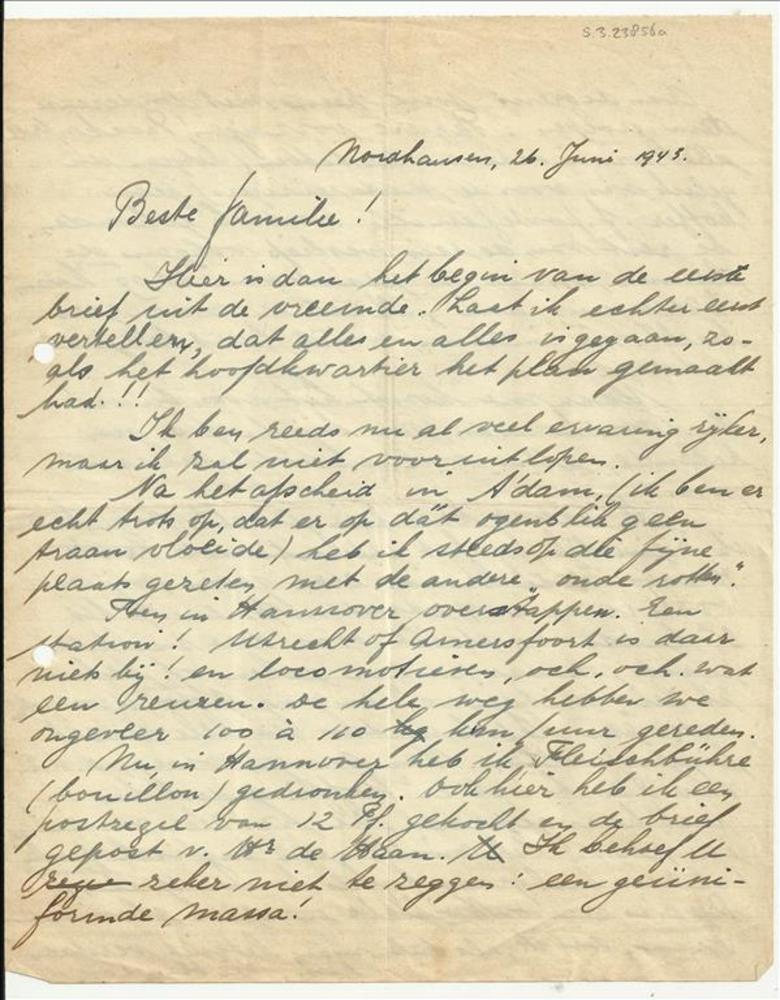 S.3.23856a
Nordhausen, 26. Juni 1943.
Beste familie!
Hier is dan het begin van de eerste
brief uit de vreemde. Laat ik echter eerst
vertellen, dat alles en alles is gegaan, zo-
als het hoofdkwartier het plan gemaakt
had.!!
Ik ben reeds nu al veel ervaring rijker,
maar ik zal niet vooruitlopen.
Na het afscheid in A'dam, (ik ben er
echt trots op, dat er op dát ogenblik geen
traan vloeide) heb ik steeds op die fijne
plaats gezeten met de andere "oude rotten".
Toen in Hannover overstappen. Een
station! Utrecht of Amersfoort is daar
niets bij! en locomotieven, och, och. wat
een reuzen. De hele weg hebben we
ongeveer 100 à 110 km/uur gereden.
Nu, in Hannover heb ik Fleischbühre
(bouillon) gedronken. Ook hier heb ik een
postzegel van 12 Pf. gekocht en de brief
gepost v. Hr de Haan. Ik behoef U
zeker niet te zeggen: een geüni-
formde massa!